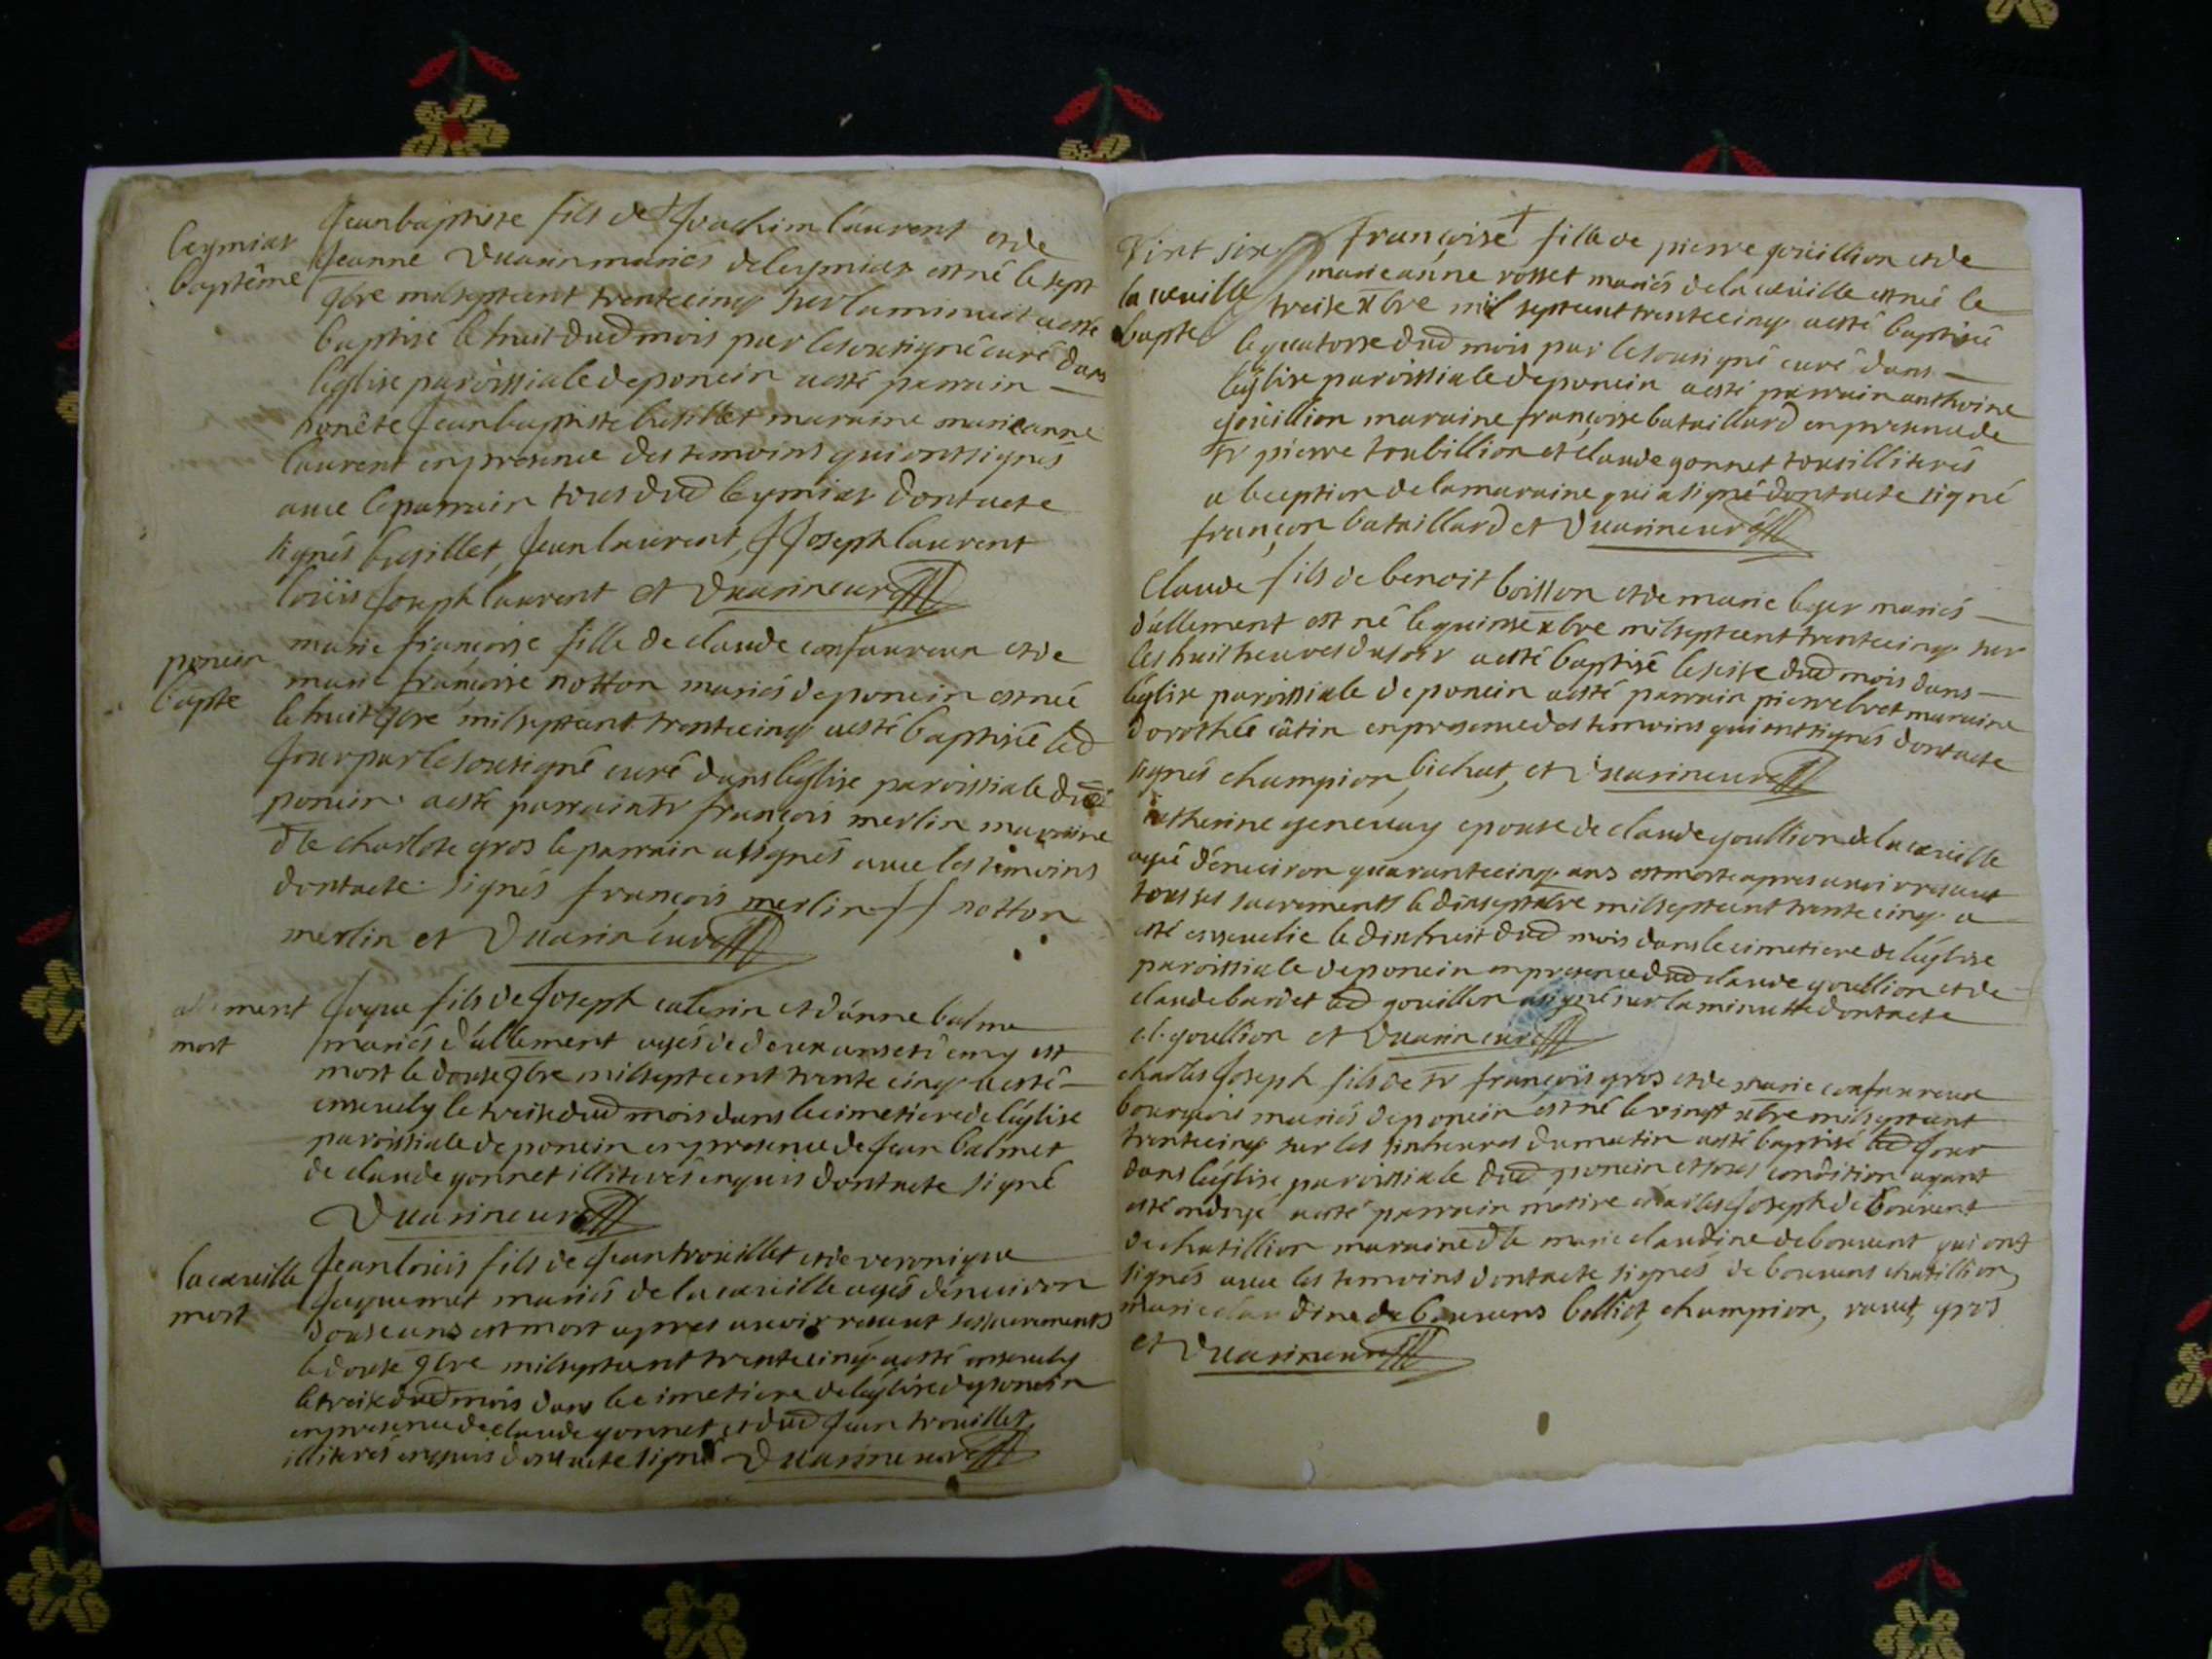 leymiat
baptême
Jeanbaptiste fils de Joachim laurent et de
Jeanne Duarin mariés de leymiat est né le sept
9bre milseptcent trentecinq sur la minuit a esté
baptisé le huit dud mois par le sousigné curé dans
léglise paroissiale deponcin a esté parrain
honête Jeanbaptiste busillet maraine marieanne
laurent en presence des temoins qui ont signés
avec le parrain tous dud leymiat dont acte
signés busillet, Jean laurent, J Joseph laurent
loüis Joseph laurent et Duarin curé
poncin
bapte
marie françoise fille de claude confavreux et de
marie françoise notton mariés de poncin est née
le huit 9bre milseptcent trentecinq a esté baptisée led
Jour par le sousigné curé dans léglise paroissiale dud
poncin a esté parrain sr françois merlin maraine
dlle charlote gros le parrain a signés avec les temoins
dont acte signés françois merlin notton
merlin et Duarin curé
allement
mort
Joseph caterin et dánne balme
mariés d'allement agés de deux ans et demy est
mort le douse 9bre milseptcent trente cinq a esté
ensevely le treise dud mois dans le cimetiere de léglise
paroissiale de poncin en presence de Jean balmet
de claude gonnet illiterés enquis dont acte signé
Duarin curé
la cœuille
mort
Jean loüis fils de Jean troüillet et de veronique
Jaquemet mariés de la cœuille agés dénviron
douse ans est mort apres avoir receut ses sacrements
le douse 9bre milseptcent trentecinq a esté ensevely
le treise dud mois dans le cimetiere de léglise de poncin
en presence de claude gonnet et dud Jean troüillet
illiterés enquis dont acte signé Duarin curé
Vint six
la cœuille
bapte
françoise fille de pierre goüillion et de
marie anne rosset mariés de la cœuille est née le
treise xbre mil septcent trentecinq a esté baptisée
le quatorse dud mois par le sousigné curé dans
léglise paroissiale de poncin a esté parrain anthoine
goüillion maraine françoise bataillard en presence de
sr pierre toubillion et claude gonnet tous illiterés
a lexeption de la maraine qui a signé dont acte signé
françon bataillard et Duarin curé
Claude fils de benoit boisson et de marie leger mariés
d'allement est né le quinse xbre milseptcent trentecinq sur
les huit heures du soir a esté baptisé le seise dud mois dans
léglise paroissiale de poncin a esté parrain pierre bret maraine
dorothée câtin en presence des temoins qui ont signés dont acte
signés champion, bichat, et Duarin curé
catherine genevay epouse de claude goullion de la cœuille
agée dénviron quarantecinq ans est morte apres avoir receut
tous ses sacrements le dixsept xbre milseptcent trentecinq a
esté ensevelie le dixhuit dud mois dans le cimetiere de léglise
paroissiale de poncin en presence dud claude goullion et de
claude bardet led goüillon a signé sur la minutte dont acte
cl. goullion et Duarin curé
charles Joseph fils de sr françois gros et de marie confavreux
bourgeois mariés de poncin est né le vingt xbre milseptcent
trentecinq sur les six heures du matin a esté baptisé led Jour
dans léglise paroissiale dud poncin et sous condition ayant
esté ondoyé a esté parrain messire charles Joseph de bouvent
de chatillion maraine dlle marie claudine de bouvent qui ont
signés avec les temoins dont acte signés de bouvens chatillion,
marie claudine de bouvens belliot, champion, ravet, gros
et Duarin curé